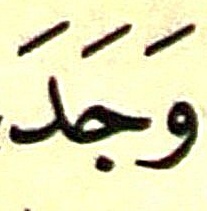 وَجَدَ